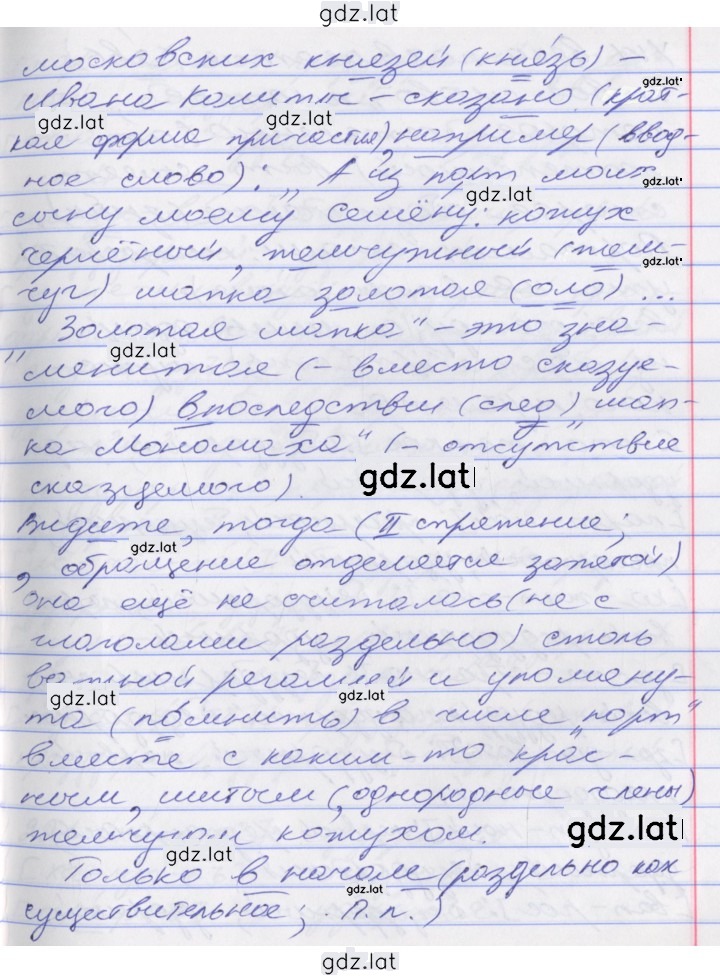 gdz.lat
московских князей (князь) –
Ивана Калиты – сказано (крат-
gdz.lat
gdz.lat
кая форма причастия), например (ввод-
gdz.lat
ное слово): „А из порт моих
gdz.lat
сыну моему Семёну: кожух
черлёный, жемчужный (жем-
gdz.lat
чуг) шапка золотая (оло) ...
„Золотая шапка“ – это зна-
gdz.lat
менитая (– вместо сказуе-
мого) впоследствии (след) „шап-
ка Мономаха“ (– отсутствие
gdz.lat
сказуемого).
Видите, тогда (II спряжение;
gdz.lat
, обращение отделяется запятой)
она ещё не считалась (не с
глаголами раздельно) столь
важной регалией и упомяну-
gdz.lat
gdz.lat
та (помнить) в числе „порт“
вместе с каким-то крас-
ным, шитым (однородные члены)
жемчугом кожухом.
gdz.lat
gdz.lat
Только в начале (раздельно как
gdz.lat
существительное; П.п.)
gdz.lat